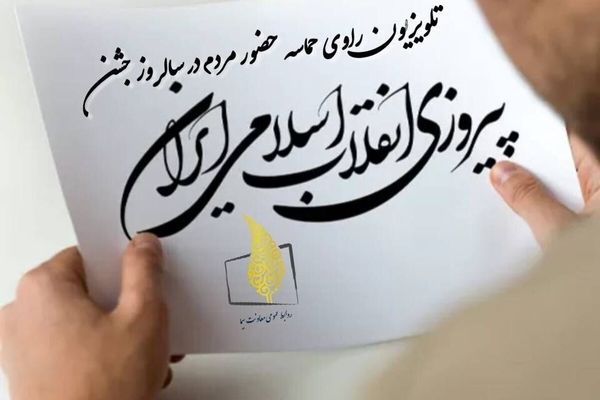 تلویزیون راوی حماسه حضور مردم در سالروز جشن
پیروزی انقلاب اسلامی ایران
روابط عمومی معاونت سیما